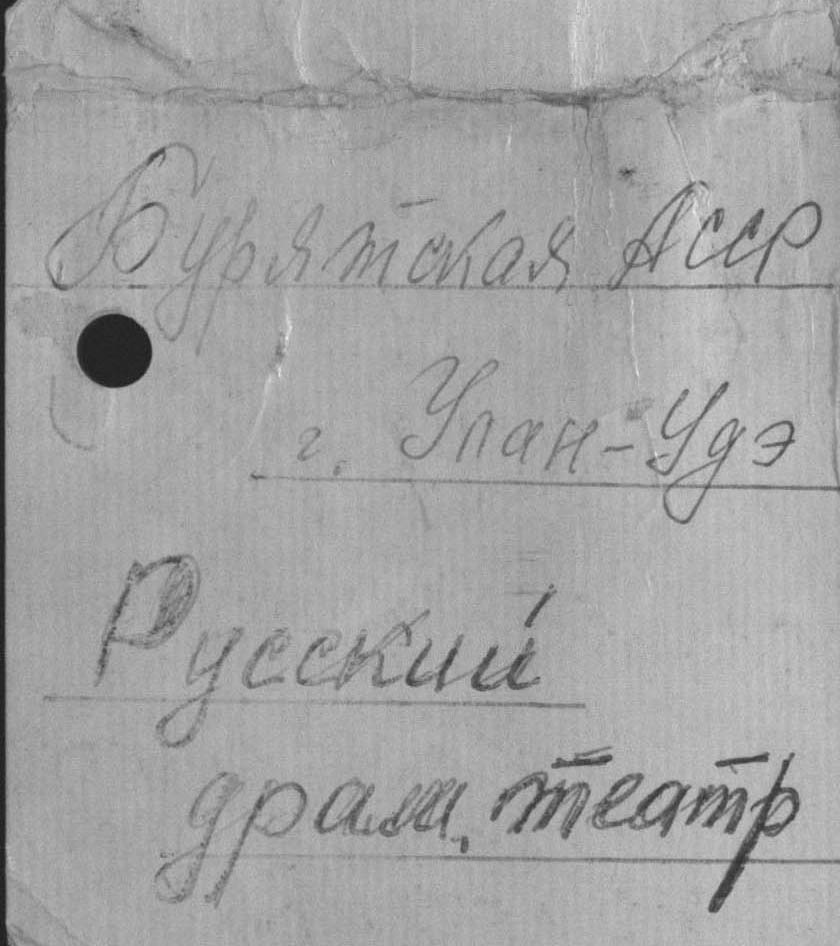 Бурятская АССР
г. Улан-Удэ
Русский
драм. театр